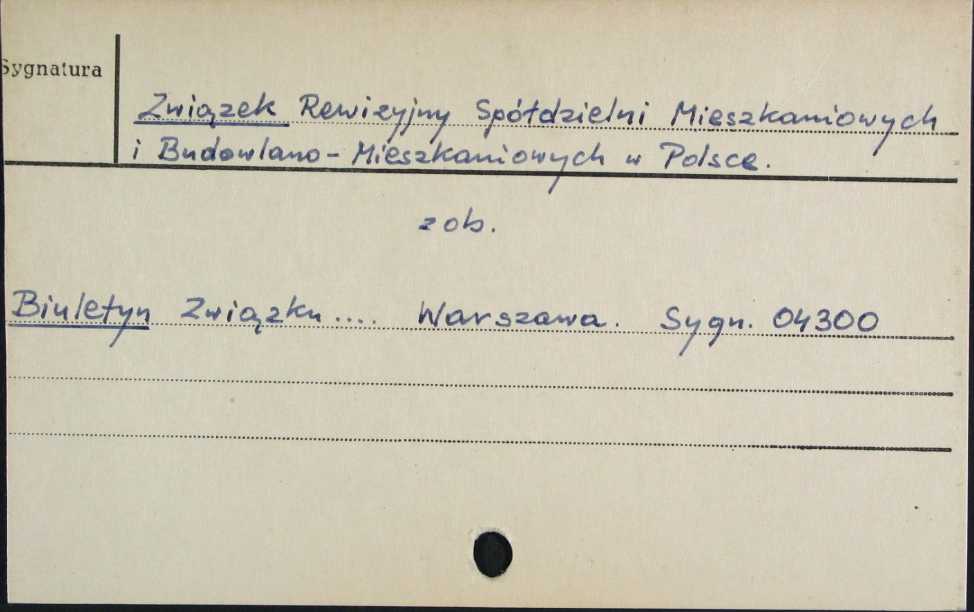 Sygnatura
Związek Rewizyjny Spółdzielni Mieszkaniowych
i Budowlano-Mieszkaniowych w Polsce.
zob.
Biuletyn Związku.... Warszawa. Sygn. 04300